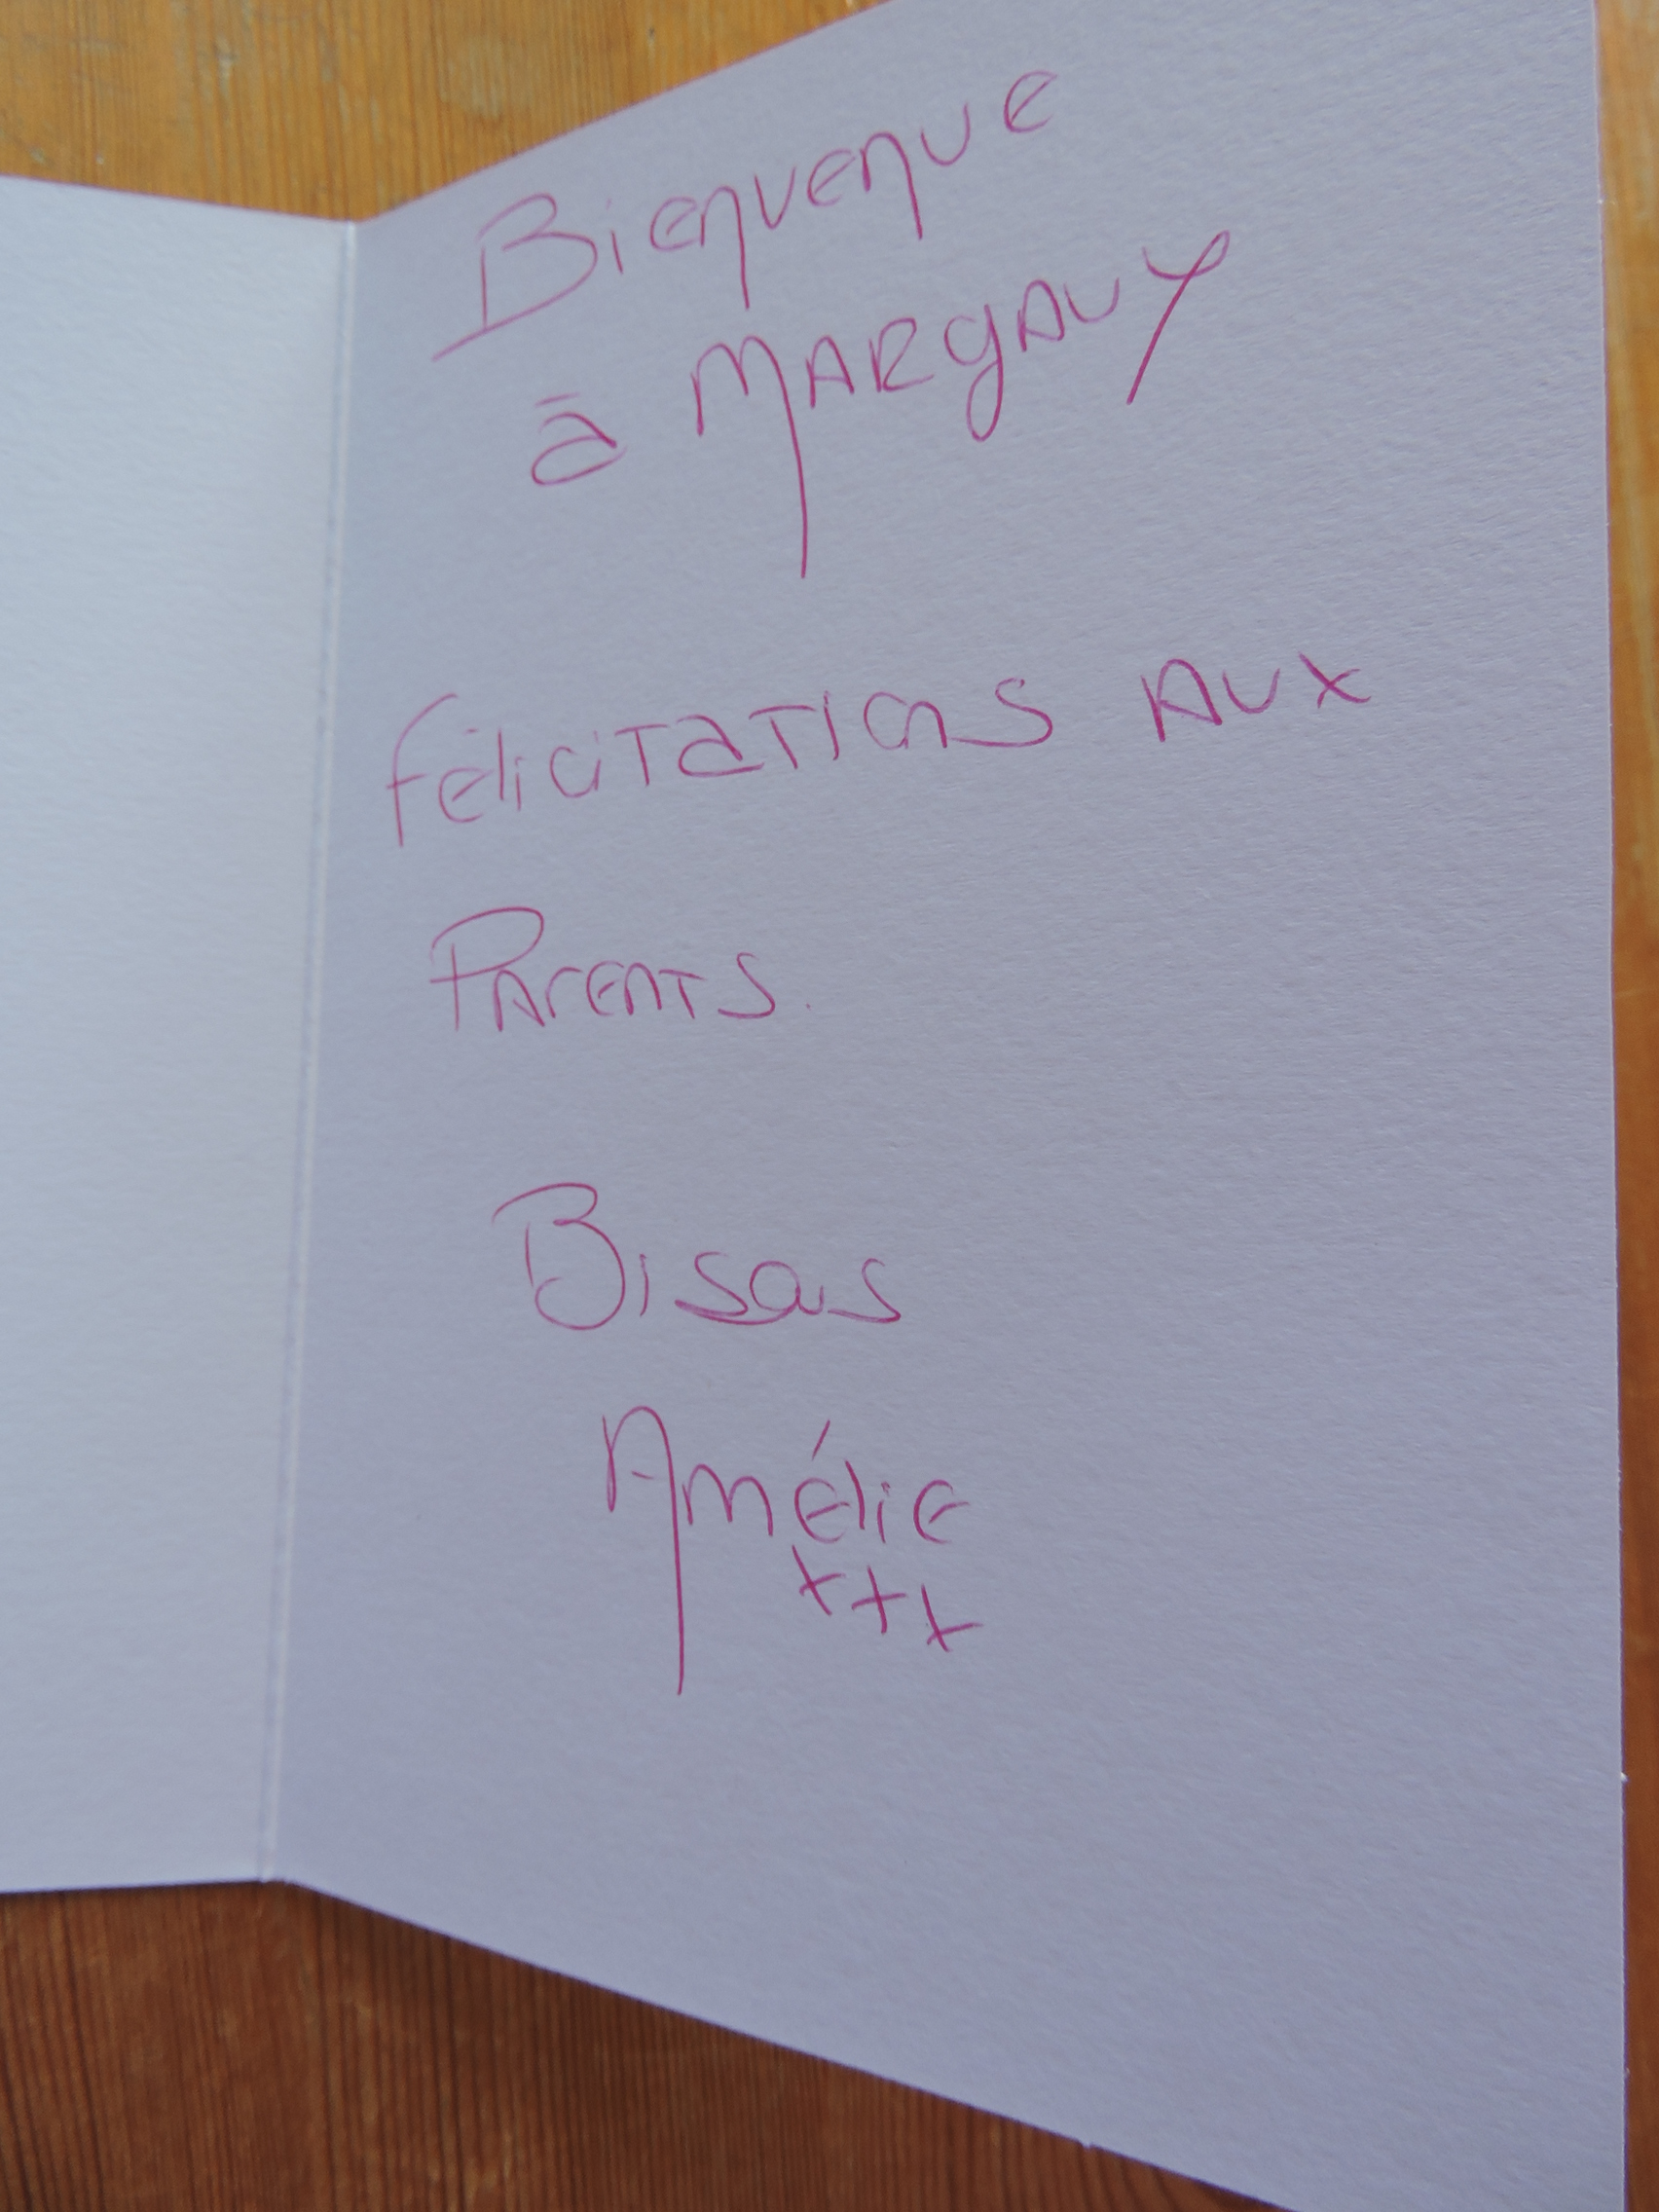 Bienvenue
à MARGAUX
félicitations AUX
PARENTS.
Bisous
Amélie
+++